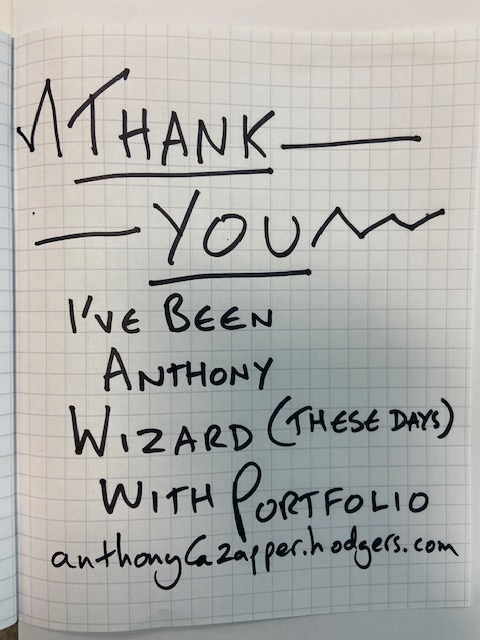 THANK
YOU
I'VE BEEN
ANTHONY
WIZARD (THESE DAYS)
WITH PORTFOLIO
anthony@zapper.hodgers.com